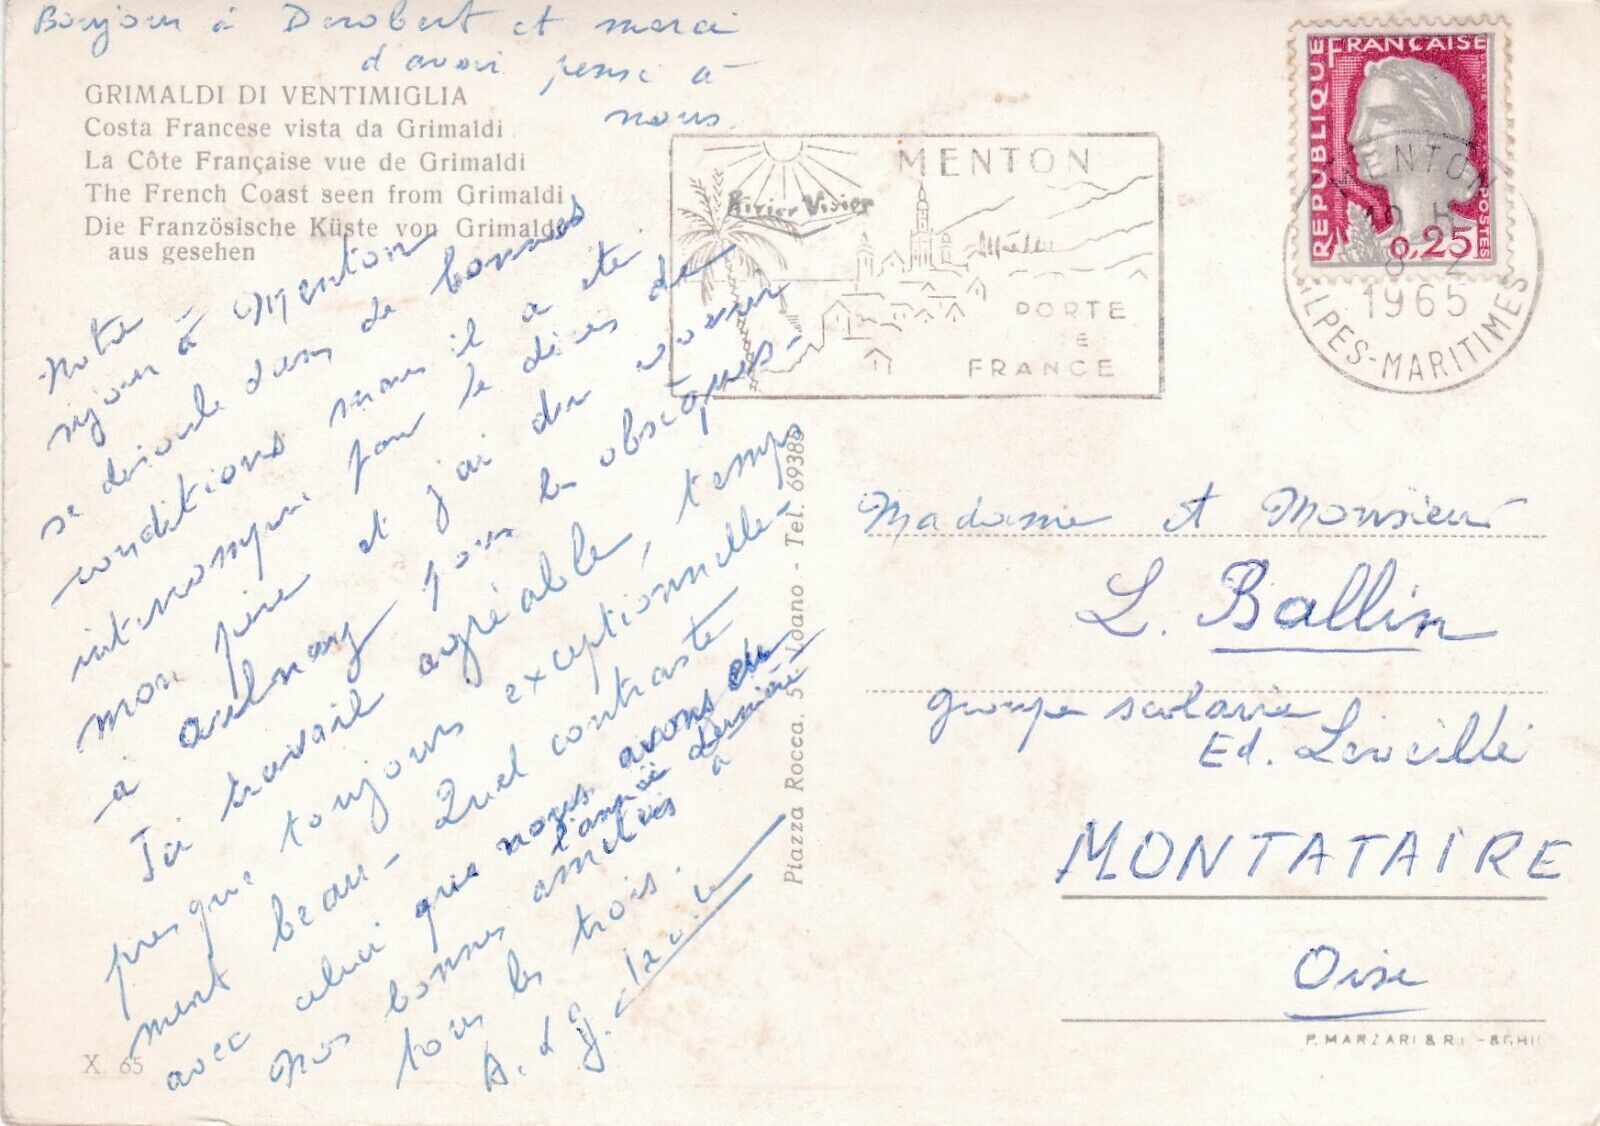 Bonjour à Derobert et merci
d'avoir pensé à
nous.
GRIMALDI DI VENTIMIGLIA
Costa Francese vista da Grimaldi
La Côte Française vue de Grimaldi
The French Coast seen from Grimaldi
Die Französische Küste von Grimaldi
aus gesehen
Notre
séjour à Menton
se déroule dans de bonnes
conditions mais il a été
interrompu par le décès de
mon père et j'ai dû venir
à aulnay pour les obsèques-
Ici travail agréable, temps
presque toujours exceptionnelle-
ment beau- Quel contraste
avec celui que nous avons eu
l'année dernière
Nos bonnes amitiés à
tous les trois.
A. et J.
X. 65
Piazza Rocca, 5 Loano - Tel. 69389
MENTON
PORTE
DE
FRANCE
REPUBLIQUE FRANÇAISE
POSTES
0,25
MENTON
8 2
1965
ALPES-MARITIMES
Madame et Monsieur
L. Ballin
groupe scolaire
Ed. Léveillé
MONTATAIRE
Oise
P. MARZARI & R.L. -